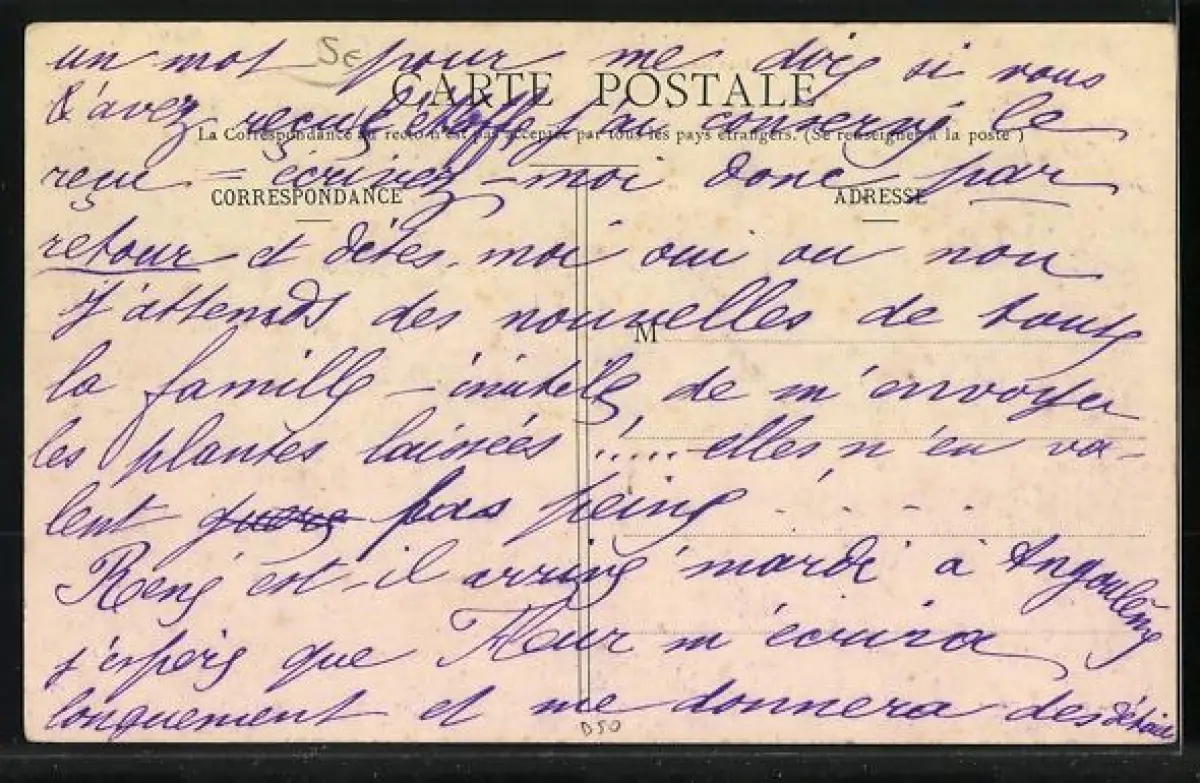 un mot pour me dire si vous
CARTE POSTALE
l'avez reçue l'étoffe j'ai conservé le
La Correspondance au recto n'est pas acceptée par tous les pays étrangers. (Se renseigner à la poste)
reçu = écrivez-moi donc par
CORRESPONDANCE
ADRESSE
retour et dites-moi oui ou non
J'attends des nouvelles de toute
M
la famille - inutile de m'envoyer
les plantes laissées !..... elles n'en va-
lent guère pas peine . . . .
René est-il arrivé mardi à Angoulême
j'espère que Fleur m'écrira
longuement et me donnera des détails
B50